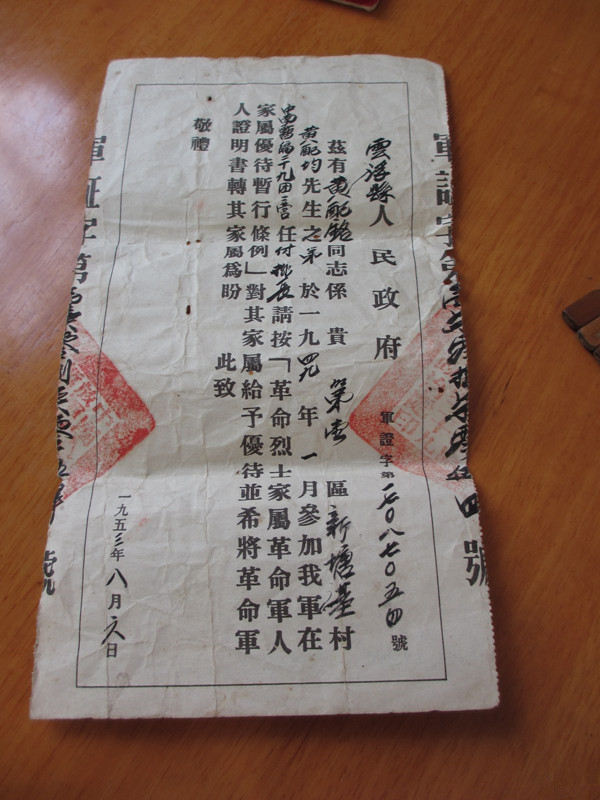 軍證字第
號
雲浮縣人民政府
軍證字第 七〇八七〇五四號
茲有黄配銘同志係 貴 第壹 區新塘基村
黄配均先生之弟於一九四九年一月參加我軍在
任付排長請按「革命烈士家屬革命軍人
家屬優待暫行條例」對其家屬給予優待並希將革命軍
人證明書轉其家屬爲盼
此致
敬禮
一九五三年八月 日
軍証字第
號